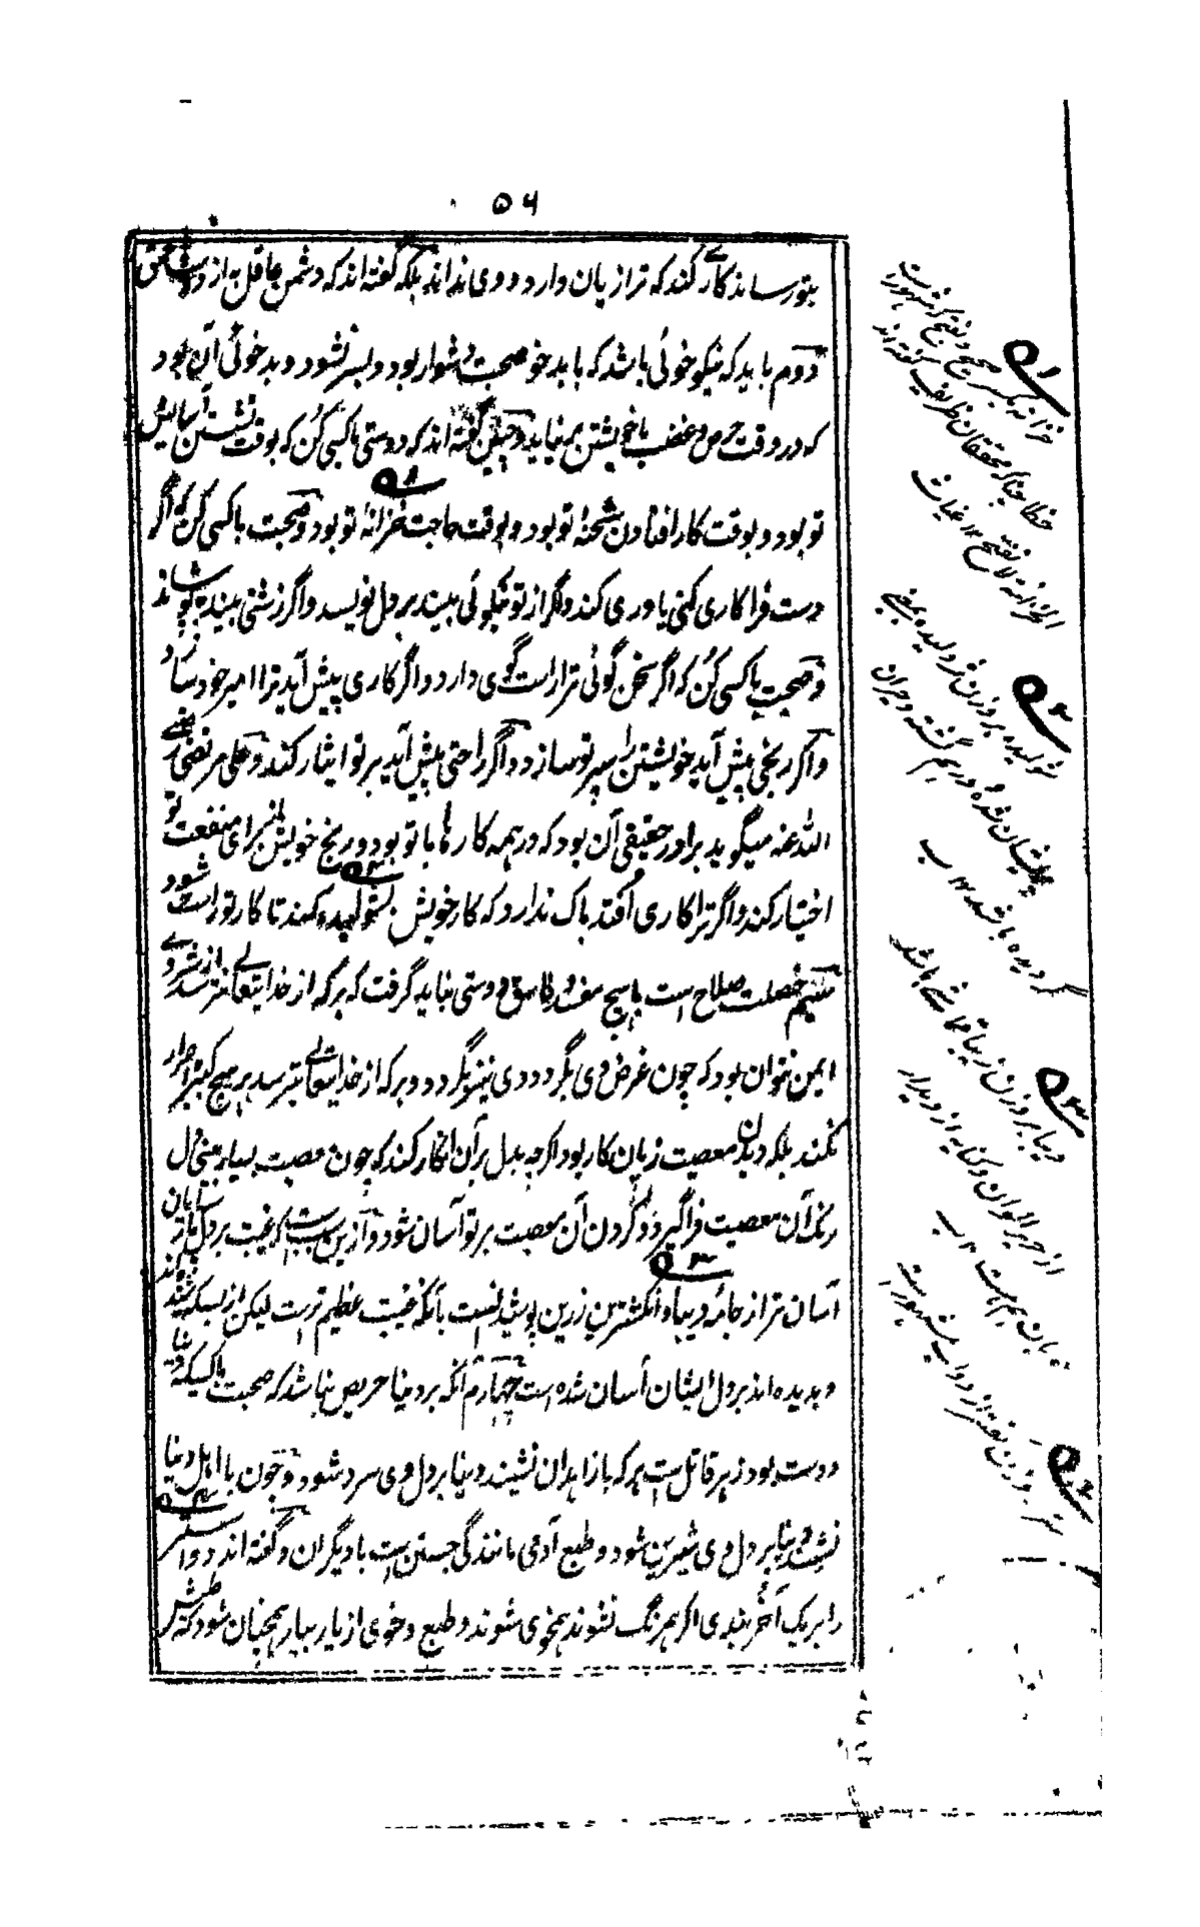 ۵۶
بتو رساند کاری کند که ترا زیان دارد و وی نداند بلکه گفته اند که دشمن عاقل به از دوست احمق
دوم باید که نیکو خوئی باشد که با بد خو صحبت دشوار بود و بسر نشود و بد خوئی آن بود
که در وقت حرص و غضب با خویشتن بر نیاید و چنین گفته اند که دوستی با کسی کن که بوقت نشستن آسایش
تو بود و بوقت کار افتادن شحنهٔ تو بود و بوقت حاجت خزانهٔ تو بود و صحبت با کسی کن که اگر
دست فرا کاری کنی یاوری کند و اگر از تو نیکوئی بیند بر دل نویسد و اگر زشتی بیند بپوشاند
و صحبت با کسی کن که اگر سخن گوئی ترا راست گوی دارد و اگر کاری پیش آید ترا امیر خود سازد
و اگر رنجی پیش آید خویشتن را سپر تو سازد و اگر راحتی پیش آید بر تو ایثار کند و علی مرتضی رضی
الله عنه میگوید برادر حقیقی آن بود که در همه کارها با تو بود و رنج خویش برای منفعت تو
اختیار کند و اگر ترا کاری افتد باک ندارد که کار خویش بشولیده کند تا کار تو راست شود
سیم خصلت صلاح است با هیچ مفسد و فاسق دوستی نباید گرفت که هر که از خدایتعالی نترسد از شر وی
ایمن نتوان بود که چون غرض وی بگردد وی نیز بگردد و هر که از خدایتعالی بترسد بر هیچ کبیره اصرار
نکند بلکه دیدن معصیت زیان کار بود اگر چه بدل بر آن انکار کند که چون معصیت بسیار بینی دل
رنگ آن معصیت فرا گیرد و کردن آن معصیت بر تو آسان شود و ازین سبب است که غیبت بر دل پارسایان
آسان تر از جامهٔ دیبا و انگشترین زرین پوشیدنست با آنکه غیبت عظیم ترست لیکن از بسکه شنیدند
و بدیده اند بر دل ایشان آسان شده است چهارم آنکه بر دنیا حریص نباشد که صحبت با کسیکه دنیا
دوست بود زهر قاتل ست هر که با زاهدان نشیند دنیا بر دل وی سرد شود و چون با اهل دنیا
نشیند دنیا بر دل وی شیرین شود و طبع آدمی مانندگی جستن ست با دیگران و گفته اند دو استر
را بر یک آخر بندی اگر همرنگ نشوند همخوی شوند و طبع و خوی از یار بیار همچنان شود که
۱ه
خزانه بکسر صحیح و بفتح که مشهورست
خطا چنانکه محققان ظریف گفته اند
الخزانة لا تفتح ۱۲ غیاث
۲ه
بشولیده بر وزن ژولیده یعنی
پریشان شده و در هم گشته و حیران
گردیده باشد ۱۲ ب
۳ه
دیبا بر وزن زیبا قماشی باشد
از حریر الوان و کنایه از دیدار
بان هم هست ۱۲ ب
۴ه